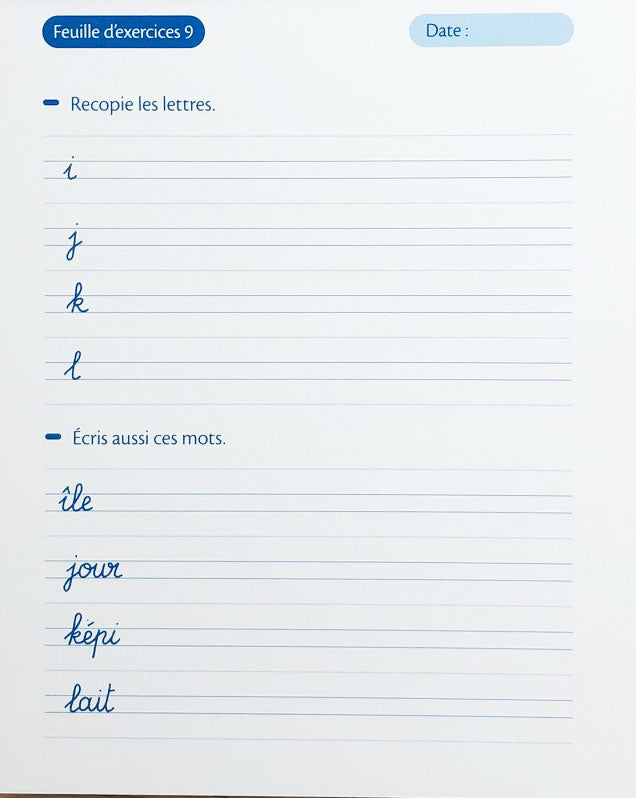 Feuille d'exercices 9
Date :
Recopie les lettres.
i
j
k
l
Écris aussi ces mots.
île
jour
képi
lait